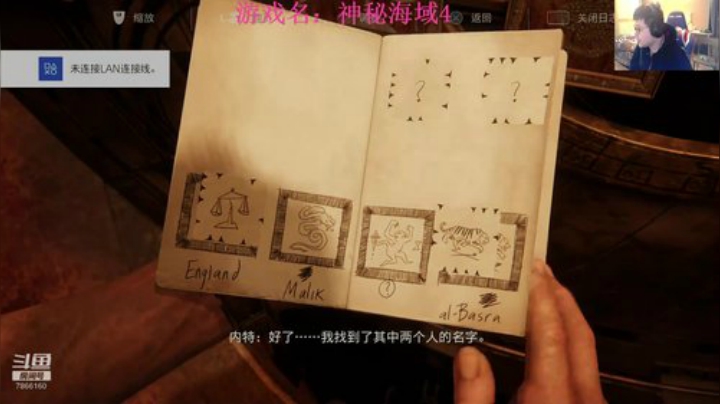 游戏名：神秘海域4
缩放
返回
关闭日志
未连接LAN连接线。
?
?
England
Malik
?
al-Basra
内特：好了……我找到了其中两个人的名字。
斗鱼
房间号
7866160